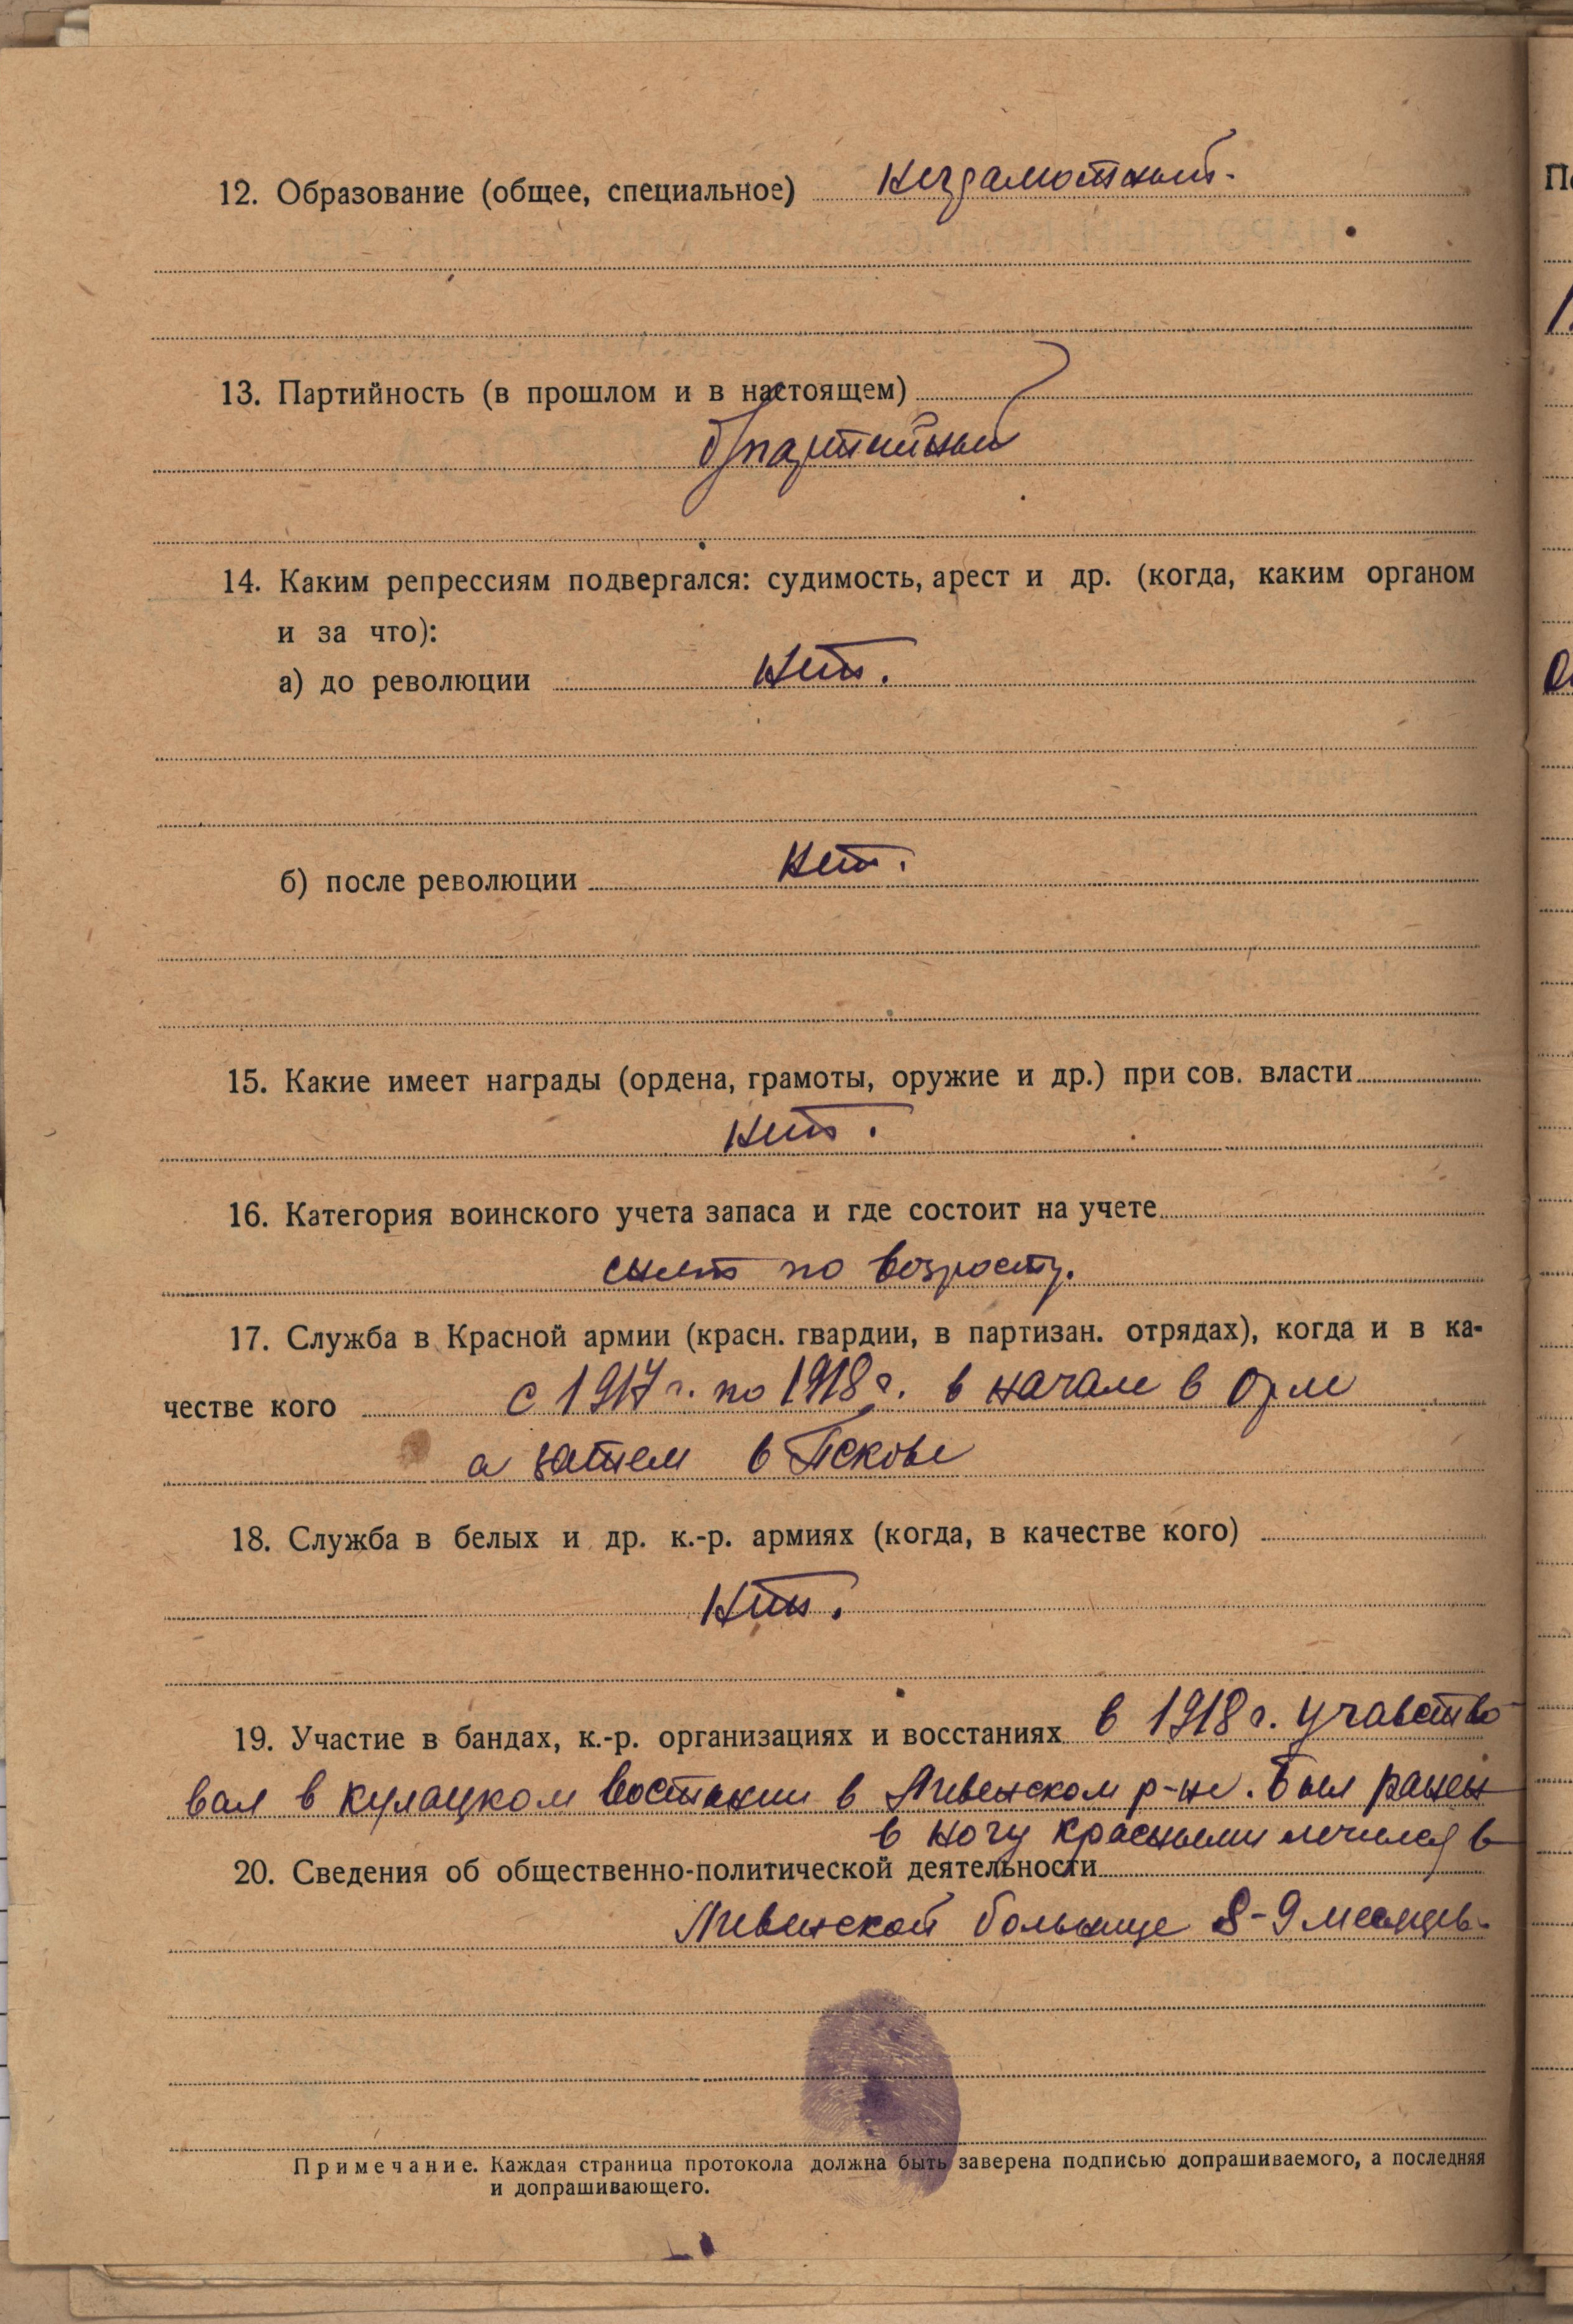 12. Образование (общее, специальное) неграмотный.
13. Партийность (в прошлом и в настоящем)
б/партийный
14. Каким репрессиям подвергался: судимость, арест и др. (когда, каким органом
и за что):
а) до революции нет.
б) после революции нет.
15. Какие имеет награды (ордена, грамоты, оружие и др.) при сов. власти
нет.
16. Категория воинского учета запаса и где состоит на учете
снят по возросту.
17. Служба в Красной армии (красн. гвардии, в партизан. отрядах), когда и в ка-
честве кого с 1917 г. по 1918 г. в начале в Орле
а затем в Пскове
18. Служба в белых и др. к.-р. армиях (когда, в качестве кого)
нет.
19. Участие в бандах, к.-р. организациях и восстаниях в 1918 г. участво
вал в кулацком востании в Ливенском р-не. Был ранен
в ногу красными лечился в
20. Сведения об общественно-политической деятельности
Ливенской больнице 8-9 месяцев.
Примечание. Каждая страница протокола должна быть заверена подписью допрашиваемого, а последняя
и допрашивающего.